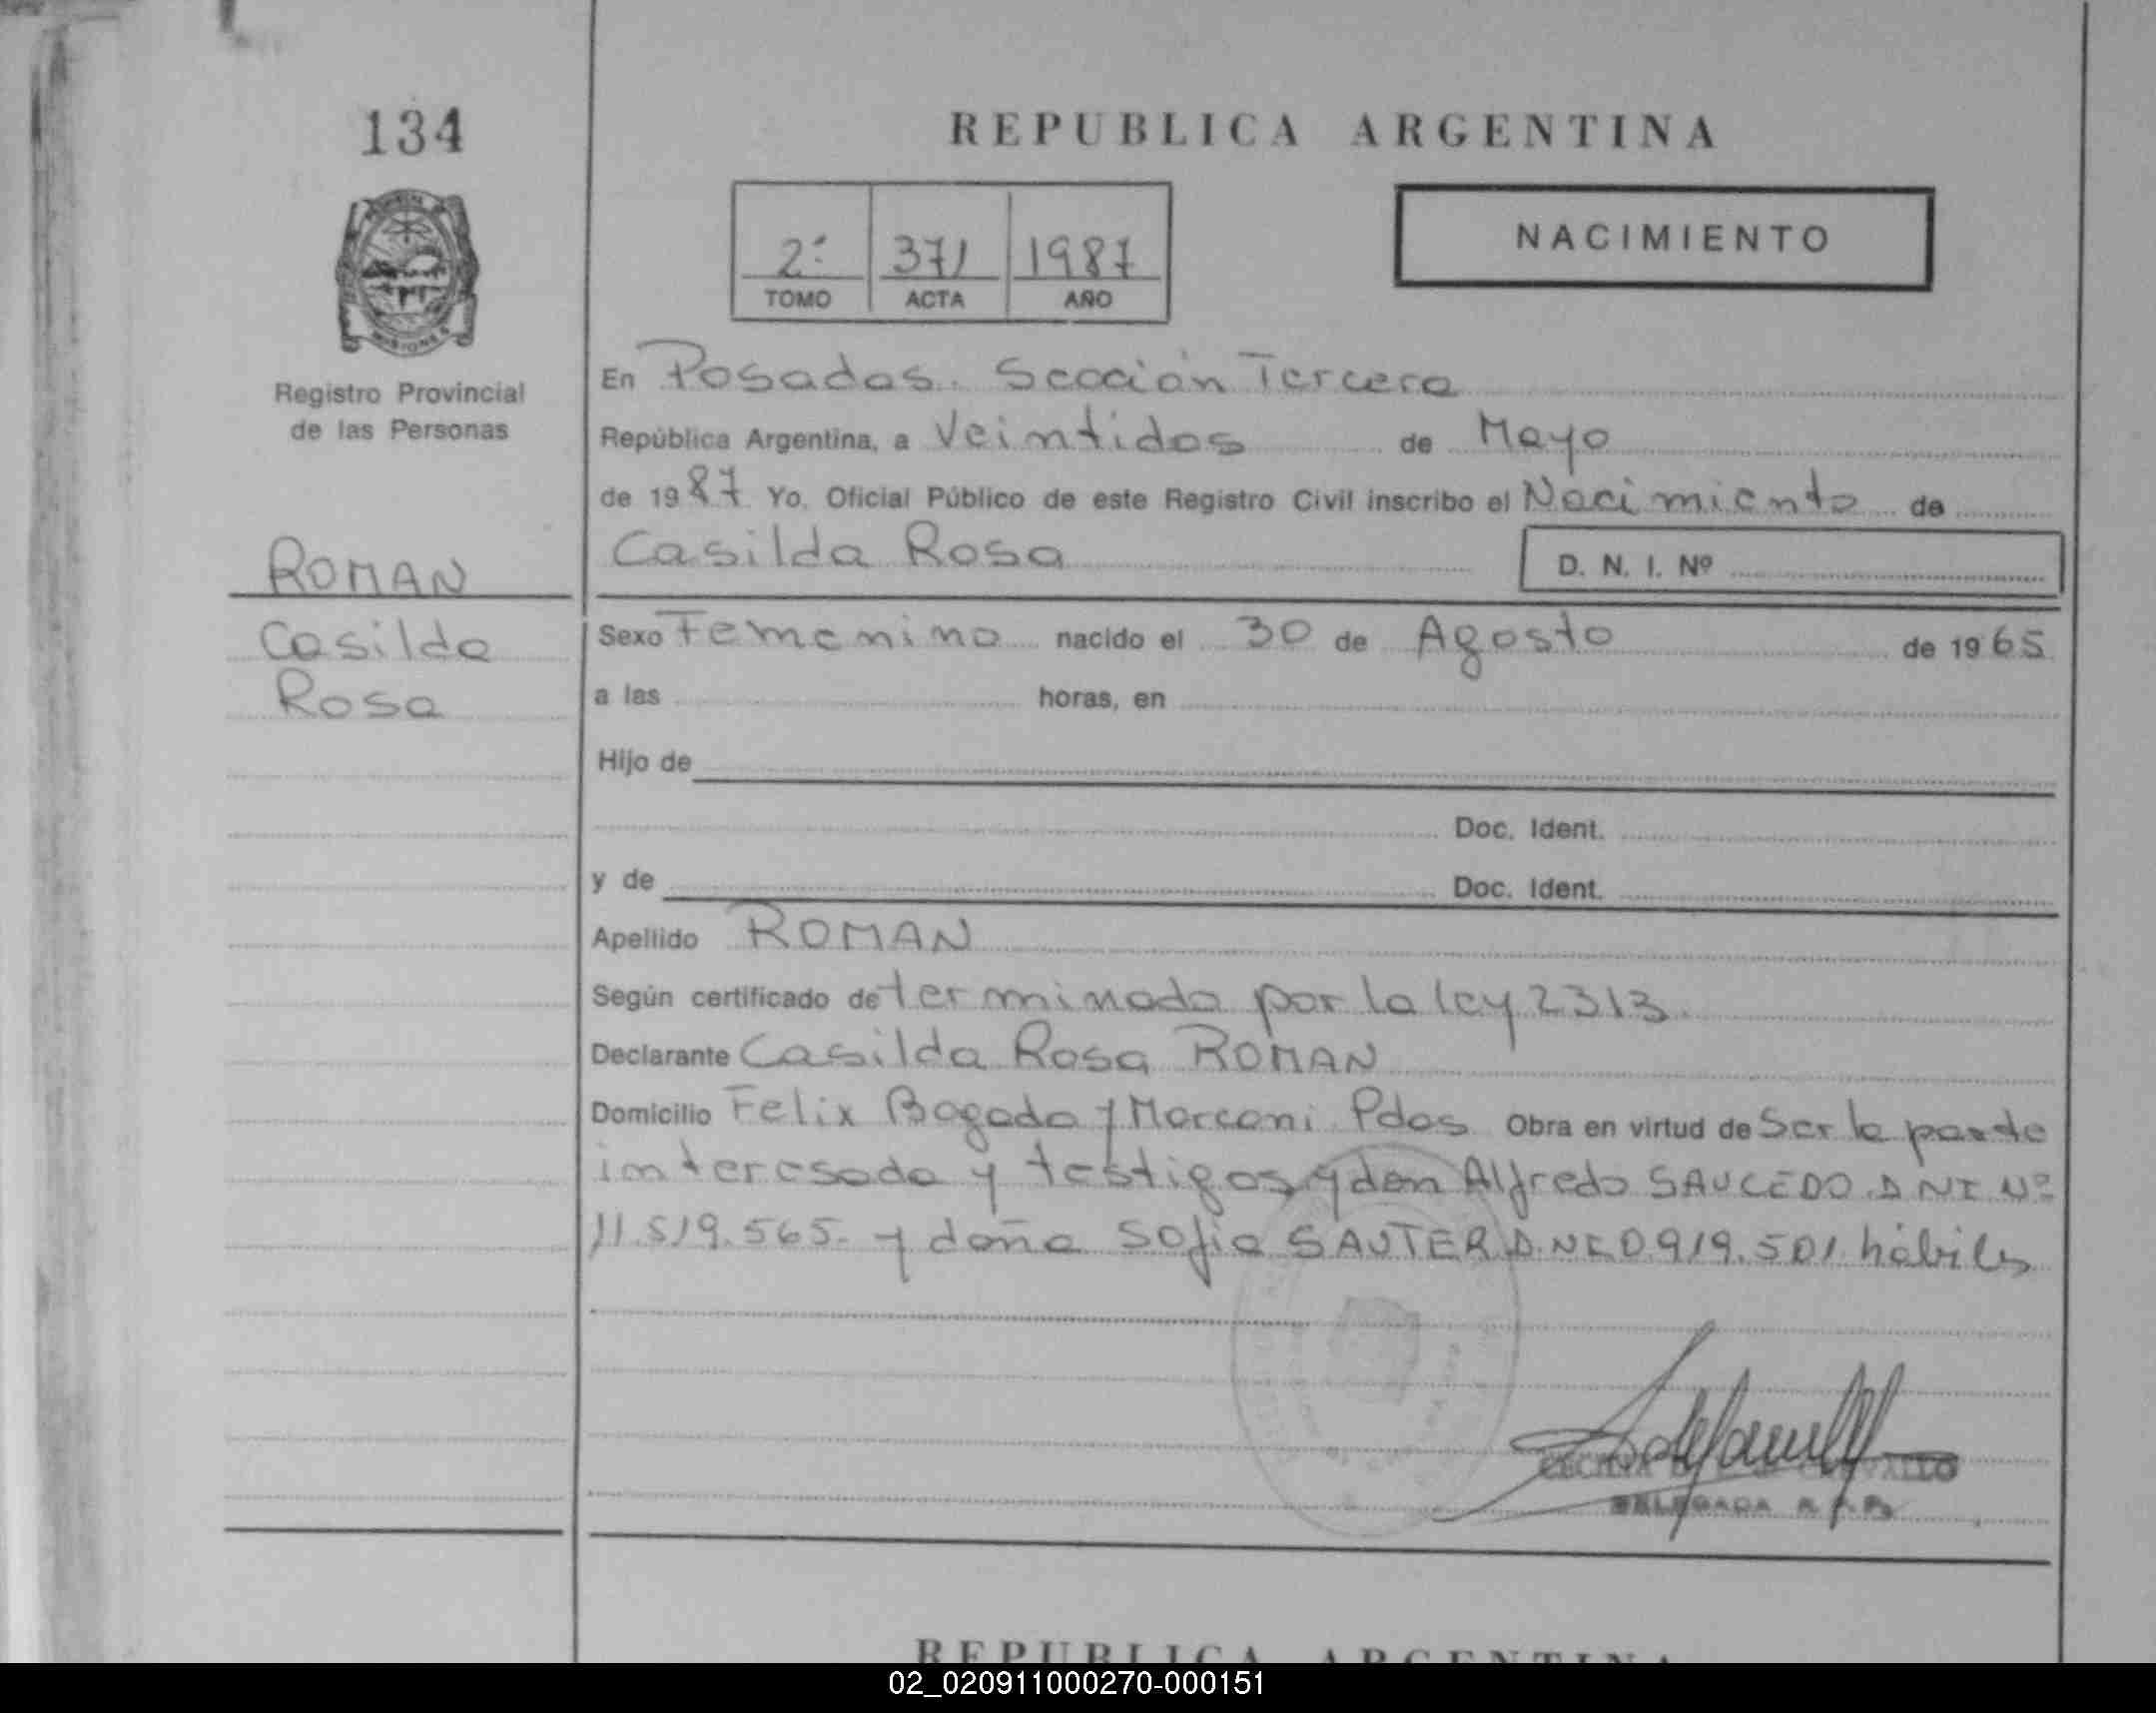 134
REPUBLICA ARGENTINA
MISIONES
Registro Provincial
de las Personas
2º 371 1987
TOMO ACTA AÑO
NACIMIENTO
En Posadas. Sección Tercera
República Argentina, a Veintidos de Mayo
de 1987 Yo, Oficial Público de este Registro Civil inscribo el Nacimiento de
Casilda Rosa D. N. I. Nº
ROMAN
Casilda
Rosa
Sexo Femenino nacido el 30 de Agosto de 1965
a las horas, en
Hijo de
Doc. Ident.
y de Doc. Ident.
Apellido ROMAN
Según certificado determinado por la ley 2313.
Declarante Casilda Rosa ROMAN
Domicilio Felix Bogado y Marconi Pdas Obra en virtud de Ser la parte
interesada y testigos, don Alfredo SAUCEDO DNI Nº
11.519.565. y doña Sofia SAUTER D.NI. 0919.501 hábiles
CECILIA
DELEGADA R.P.P.
REPUBLICA ARGENTINA
02_020911000270-000151